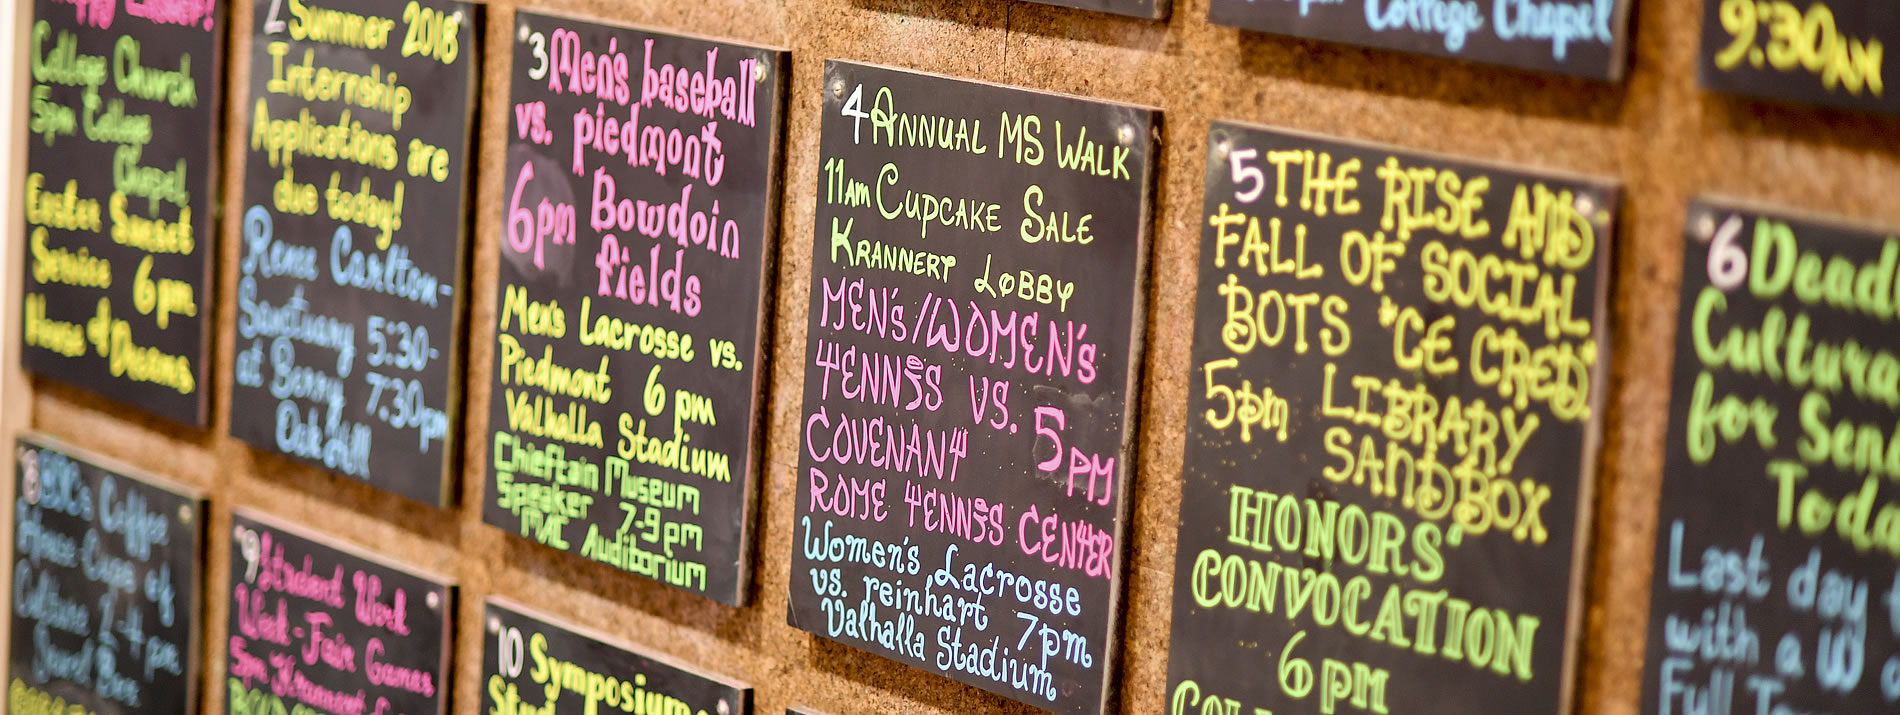 Happy Easter!
College Church
5pm College
Chapel
Easter Sunset
Service 6pm
House of Dreams
2 Summer 2018
Internship
Applications are
due today!
Renee Carlton-
Sanctuary 5:30-
at Berry 7:30pm
Oak Hill
3 Men's baseball
vs. piedmont
6pm Bowdoin
fields
Men's Lacrosse vs.
Piedmont 6 pm
Valhalla Stadium
Chieftain Museum
Speaker 7-9 pm
MAC Auditorium
4 Annual MS Walk
11am Cupcake Sale
Krannert Lobby
MEN's/WOMEN's
TENNIS VS. 5 PM
COVENANT
ROME TENNIS CENTER
Women's Lacrosse
vs. reinhart 7pm
Valhalla Stadium
College Chapel
5 THE RISE AND
FALL OF SOCIAL
BOTS "CE CRED"
5pm LIBRARY
SANDBOX
HONORS'
CONVOCATION
6 pm
9:30AM
6 Dead
Cultura
for Sen
Toda
Last day
with a W
Full
8 Coffee
House Cups of
Culture 2-4 pm
9 Student Work
Week-Fair Games
5pm Krannert
10 Symposium
Stud